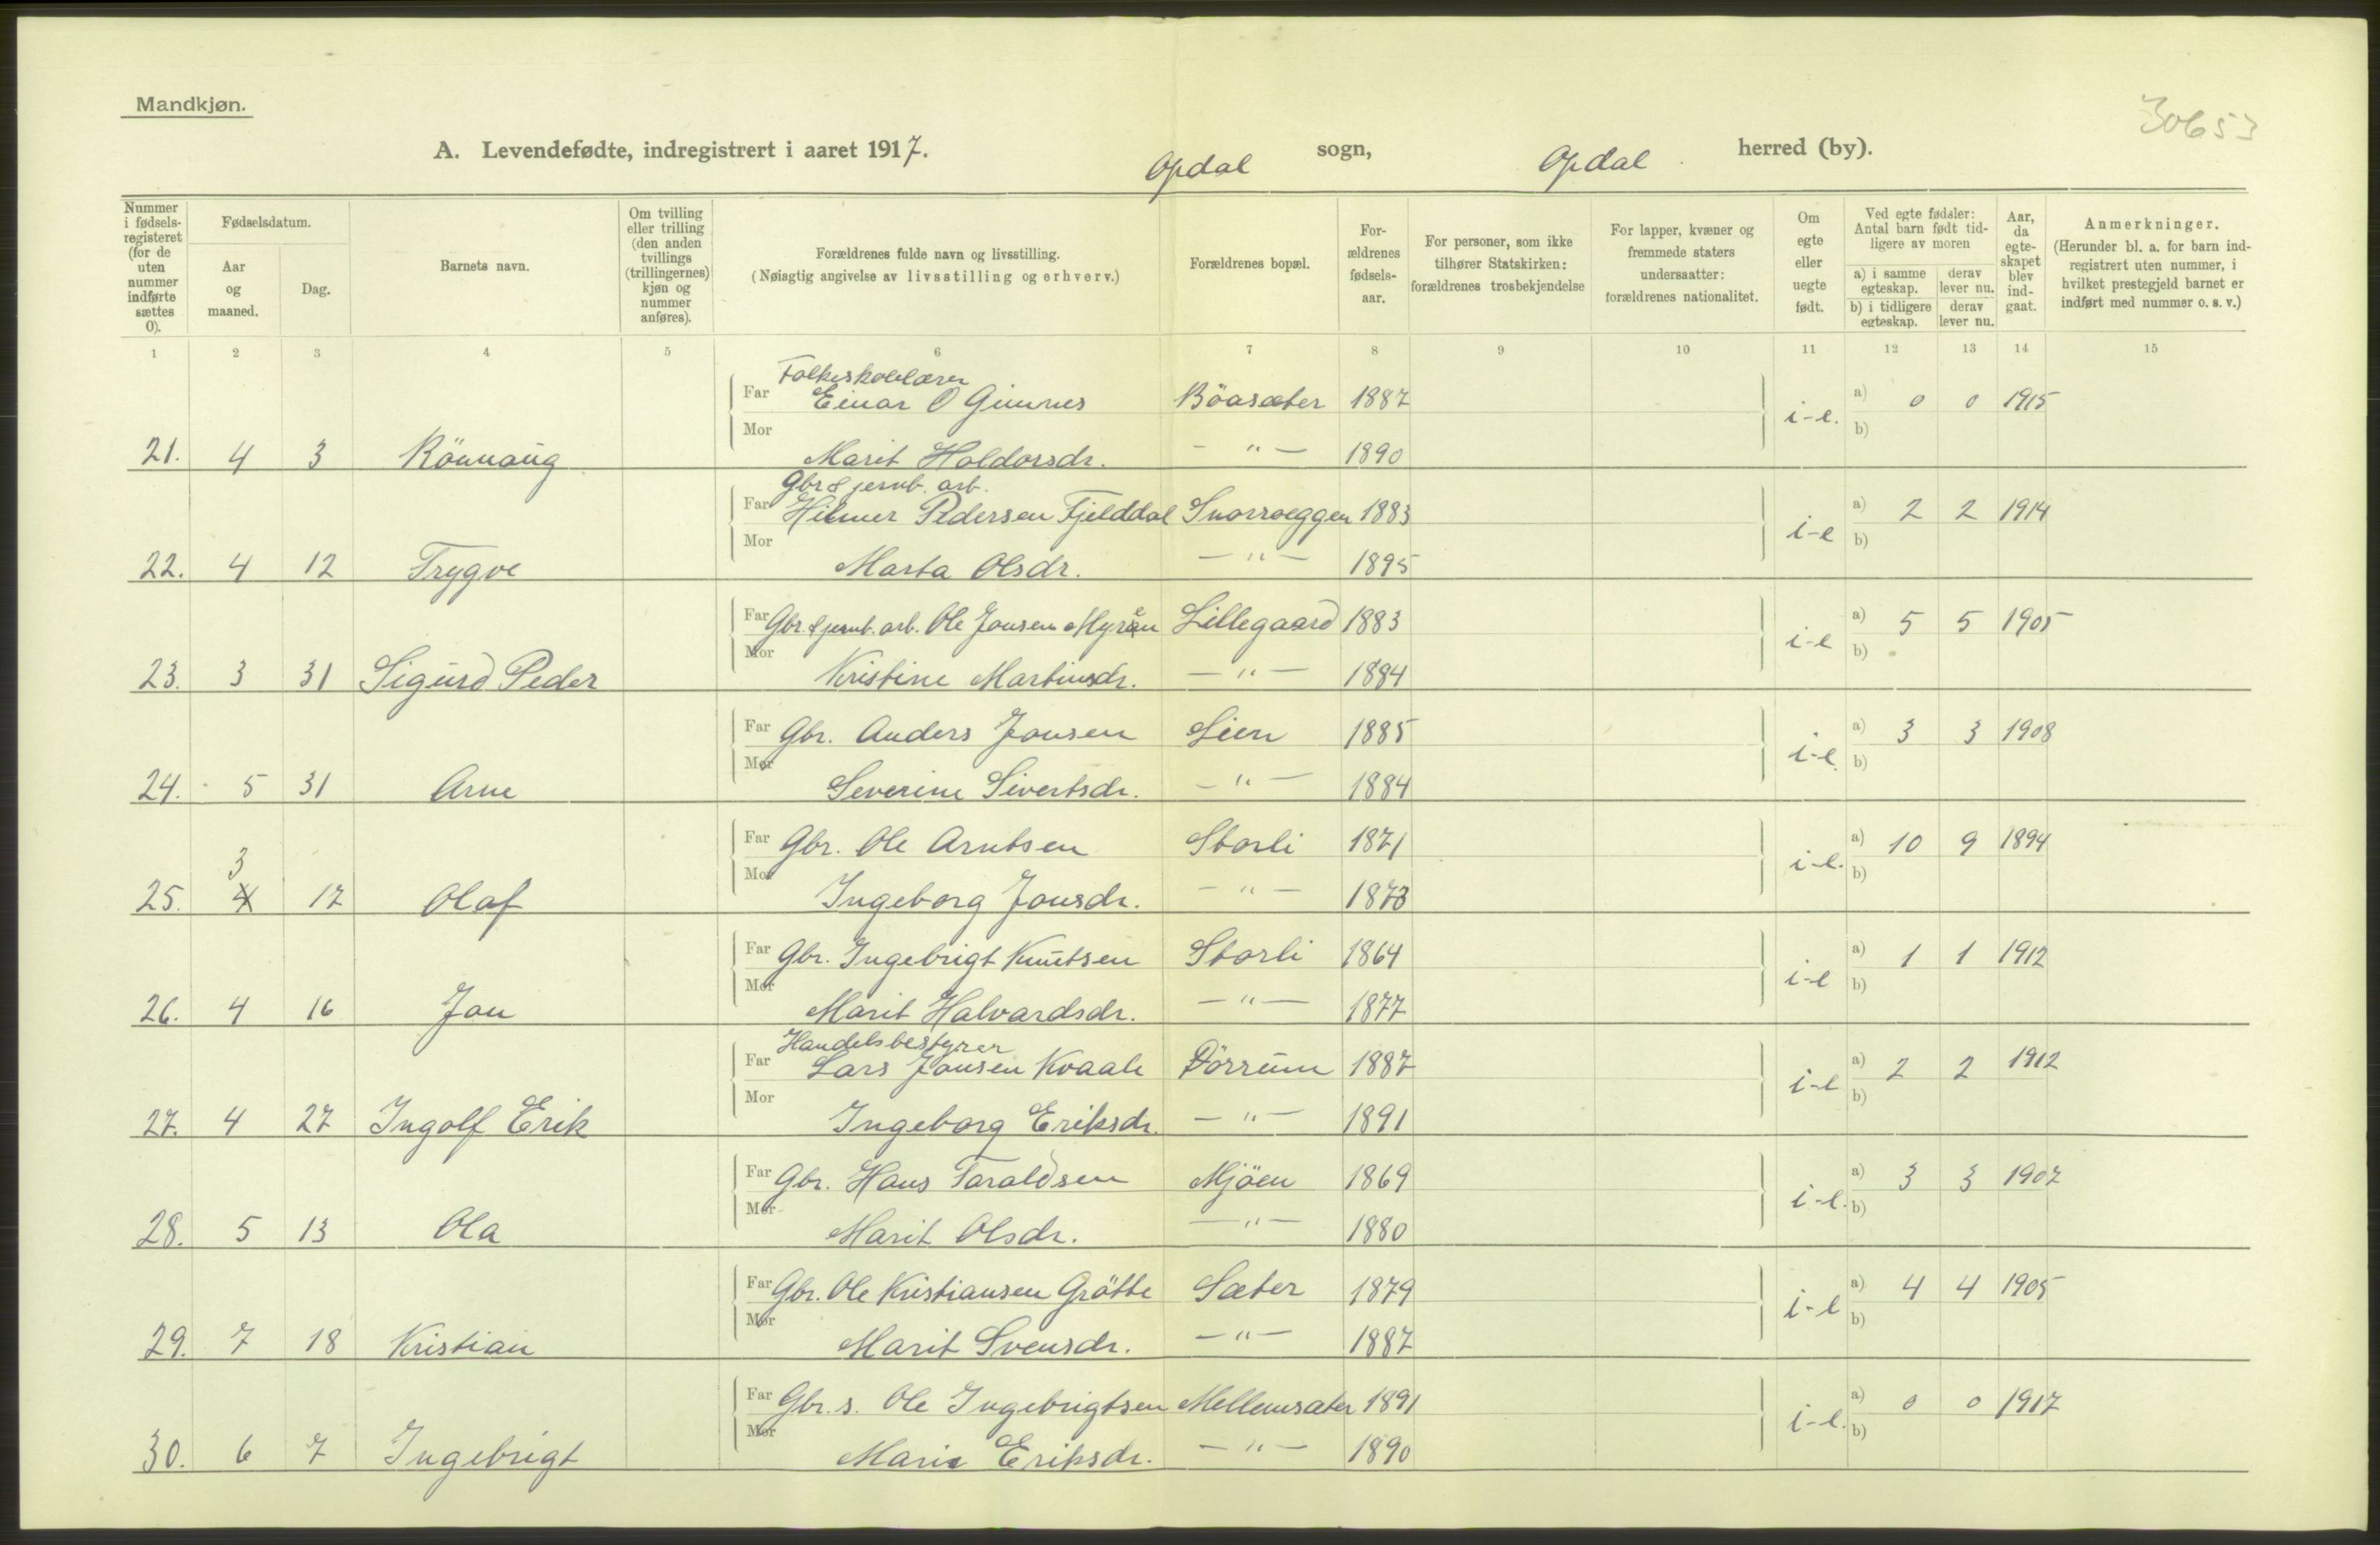 Mandkjøn.
30653
A. Levendefødte, indregistrert i aaret 1917. Opdal sogn, Opdal herred (by).
Nummer i fødsels-registeret (for de uten nummer indførte sættes 0).
Fødselsdatum.
Aar og maaned.
Dag.
Barnets navn.
Om tvilling eller trilling (den anden tvillings (trillingernes) kjøn og nummer anføres).
Forældrenes fulde navn og livsstilling.
(Nøiagtig angivelse av livsstilling og erhverv.)
Forældrenes bopæl.
For-ældrenes fødsels-aar.
For personer, som ikke tilhører Statskirken: forældrenes trosbekjendelse
For lapper, kvæner og fremmede staters undersaatter: forældrenes nationalitet.
Om egte eller uegte født.
Ved egte fødsler: Antal barn født tid-ligere av moren
a) i samme egteskap.
derav lever nu.
b) i tidligere egteskap.
derav lever nu.
Aar, da egte-skapet blev ind-gaat.
Anmerkninger.
(Herunder bl. a. for barn ind-registrert uten nummer, i hvilket prestegjeld barnet er indført med nummer o. s. v.)
1 2 3 4 5 6 7 8 9 10 11 12 13 14 15
Folkeskolelærer
Far Einar O Gimnes Böasæter 1887 i-e. a) 0 0 1915
21. 4 3 Rönnaug Mor Marit Haldorsdr. - " - 1890 b)
Gbr & jernb. arb.
Far Hilmer Pedersen Fjelddal Snorroeggen 1883 i-e a) 2 2 1914
22. 4 12 Trygve Mor Marta Olsdr. - " - 1895 b)
Far Gbr. & jernb. arb. Ole Jonsen Myren Lillegaard 1883 i-e a) 5 5 1905
23. 3 31 Sigurd Peder Mor Kristine Martinsdr. - " - 1884 b)
Far Gbr. Anders Jonsen Lien 1885 i-e. a) 3 3 1908
24. 5 31 Arne Mor Severine Sivertsdr. - " - 1884 b)
Far Gbr. Ole Arntsen Storli 1871 i-e. a) 10 9 1894
3
25. 4 17 Olaf Mor Ingeborg Jonsdr. - " - 1873 b)
Far Gbr. Ingebrigt Knutsen Storli 1864 i-e a) 1 1 1912
26. 4 16 Jon Mor Marit Halvardsdr. - " - 1877 b)
Handelsbestyrer
Far Lars Jonsen Kvaale Dörrum 1887 i-e a) 2 2 1912
27. 4 27 Ingolf Erik Mor Ingeborg Eriksdr. - " - 1891 b)
Far Gbr. Hans Taraldsen Mjöen 1869 i-e. a) 3 3 1907
28. 5 13 Ola Mor Marit Olsdr. - " - 1880 b)
Far Gbr. Ole Kristiansen Grötte Sæter 1879 i-e a) 4 4 1905
29. 7 18 Kristian Mor Marit Svensdr. - " - 1887 b)
Far Gbr. s. Ole Ingebrigtsen Mellemsæter 1891 i-e. a) 0 0 1917
30. 6 7 Ingebrigt Mor Marie Eriksdr. - " - 1890 b)